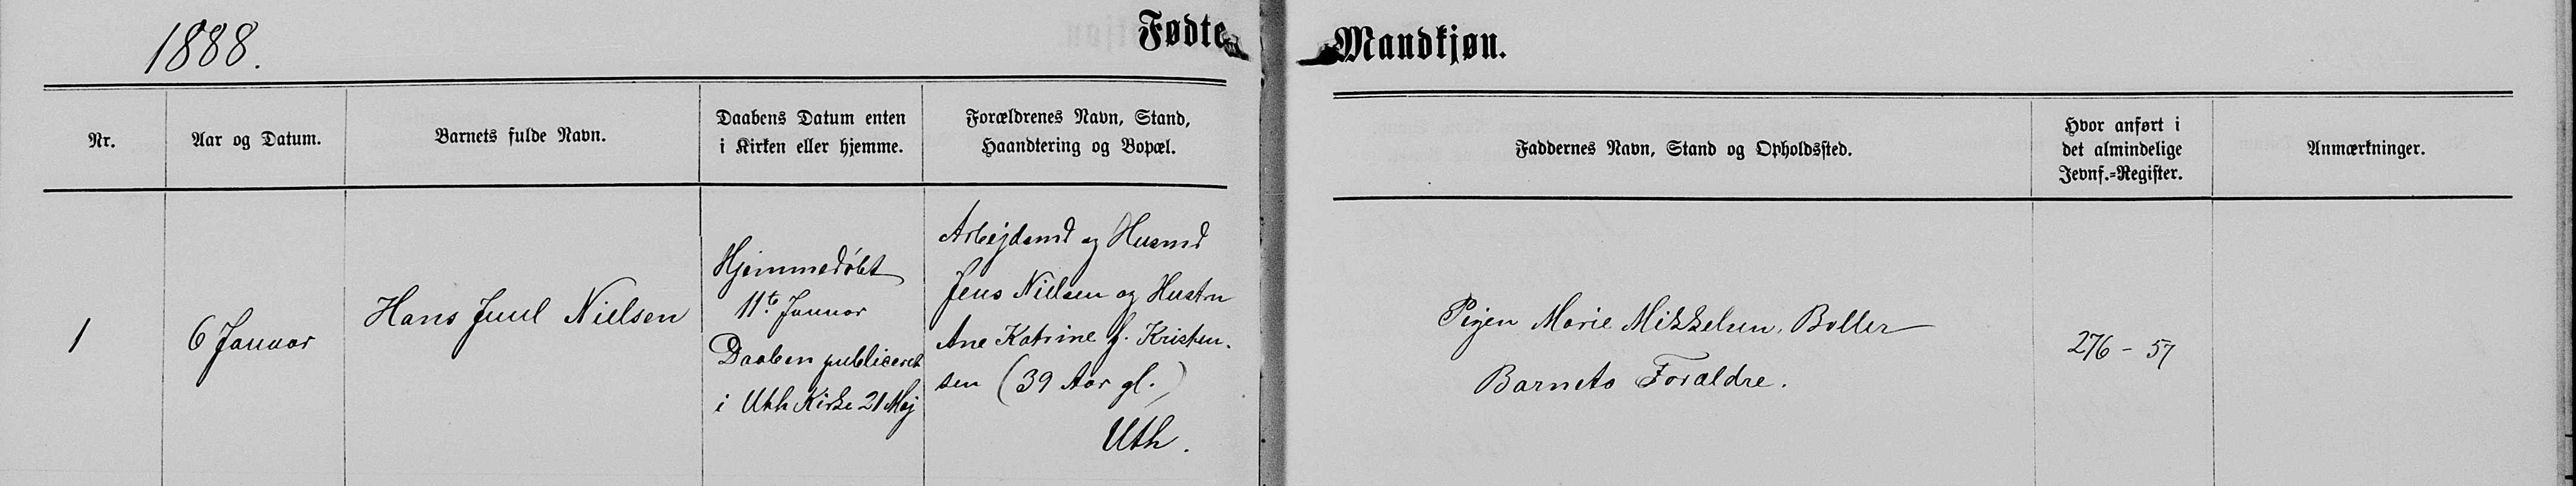 1888.
Fødte
Mandkjøn.
Nr.
Aar og Datum.
Barnets fulde Navn.
Daabens Datum enten
i Kirken eller hjemme.
Forældrenes Navn, Stand,
Haandtering og Bopæl.
Faddernes Navn, Stand og Opholdssted.
Hvor anført i
det almindelige
Jevnf.=Register.
Anmærkninger.
1
6 Januar
Hans Juul Nielsen
Hjemmedøbt
11te Januar
Daaben publiceret
i Uth Kirke 21 Maj
Arbejdsmd og Husmd
Jens Nielsen og Hustru
Ane Katrine f. Kristen-
sen (39 Aar gl.)
Uth.
Pigen Marie Mikkelsen, Boller
Barnets Forældre.
276 - 57